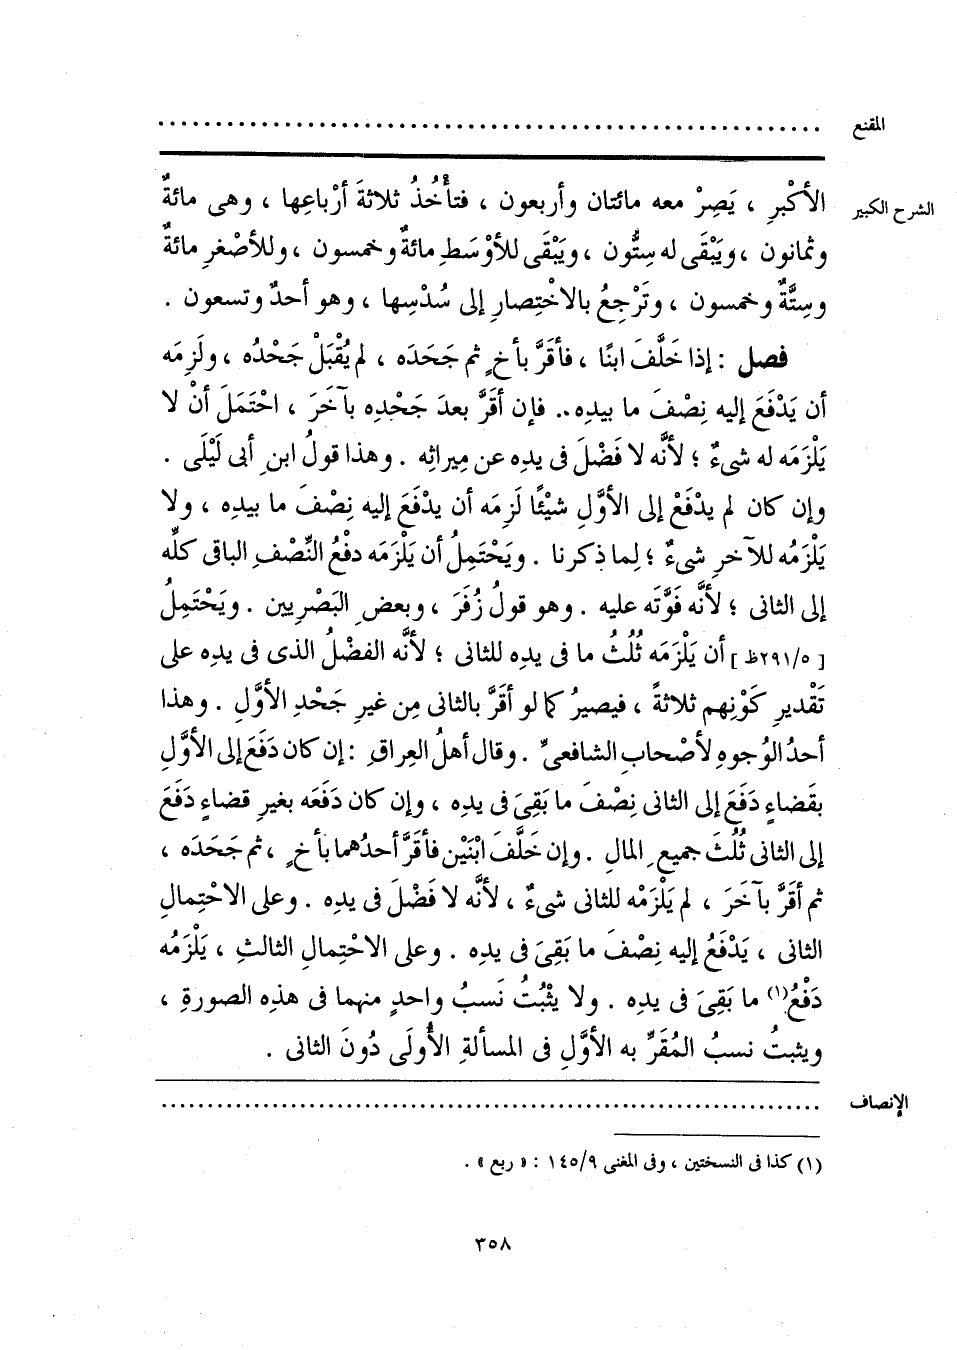 المقنع ..........................................................
الشرح الكبير
الأكْبرِ ، يَصِرْ معه مائتان وأربعون ، فتأْخُذُ ثلاثةَ أرْباعِها ، وهى مائةٌ
وثمانون ، ويَبْقَى له سِتُّون ، ويَبْقَى للأوْسَطِ مائةٌ وخمسون ، وللأصْغرِ مائةٌ
وسِتَّةٌ وخمسون ، وتَرْجِعُ بالاخْتِصارِ إلى سُدْسِها ، وهو أحدٌ وتسعون .
فصل : إذا خَلَّفَ ابنًا ، فأقَرَّ بأخٍ ثم جَحَدَه ، لم يُقْبَلْ جَحْدُه ، ولَزِمَه
أن يَدْفَعَ إليه نِصْفَ ما بيدِه.. فإن أقَرَّ بعدَ جَحْدِه بآخَرَ ، احْتَمَلَ أنْ لا
يَلْزَمَه له شىءٌ ؛ لأنَّه لا فَضْلَ فى يدِه عن مِيراثِه . وهذا قولُ ابنِ أبى لَيْلَى .
وإن كان لم يدْفَعْ إلى الأوَّلِ شيْئًا لَزِمَه أن يدْفَعَ إليه نِصْفَ ما بيدِه ، ولا
يَلْزَمُه للآخرِ شىءٌ ؛ لِما ذكرنا . ويَحْتَمِلُ أن يَلْزَمَه دفْعُ النِّصْفِ الباقى كلِّه
إلى الثانى ؛ لأنَّه فَوَّتَه عليه . وهو قولُ زُفَرَ ، وبعضِ البَصْرِيين . ويَحْتَمِلُ
[ ٢٩١/٥ظ ] أن يَلْزَمَه ثُلُثُ ما فى يدِه للثانى ؛ لأنَّه الفضْلُ الذى فى يدِه على
تَقْديرِ كَوْنِهم ثلاثةً ، فيصيرُ كما لو أقَرَّ بالثانى مِن غيرِ جَحْدِ الأوَّلِ . وهذا
أحدُ الوُجوهِ لأصْحابِ الشافعىِّ . وقال أهلُ العِراقِ : إن كان دَفَعَ إلى الأوَّلِ
بقَضاءٍ دَفَعَ إلى الثانى نِصْفَ ما بَقِىَ فى يدِه ، وإن كان دَفَعَه بغيرِ قضاءٍ دَفَعَ
إلى الثانى ثُلُثَ جميعِ المالِ . وإن خَلَّفَ ابْنَيْن فأقَرَّ أحدُهما بأخٍ ، ثم جَحَدَه ،
ثم أقَرَّ بآخَرَ ، لم يَلْزَمْه للثانى شىءٌ ، لأنَّه لا فَضْلَ فى يدِه . وعلى الاحْتِمالِ
الثانى ، يَدْفَعُ إليه نِصْفَ ما بَقِىَ فى يدِه . وعلى الاحْتِمالِ الثالثِ ، يَلْزَمُه
دَفْعُ(١) ما بَقِىَ فى يدِه . ولا يثْبُتُ نَسبُ واحدٍ منهما فى هذه الصورةِ ،
ويثبتُ نسبُ المُقَرِّ به الأوَّلِ فى المسألةِ الأُولَى دُونَ الثانى .
الإنصاف ..........................................................
(١) كذا فى النسختين ، وفى المغنى ١٤٥/٩ : « ربع » .
٣٥٨